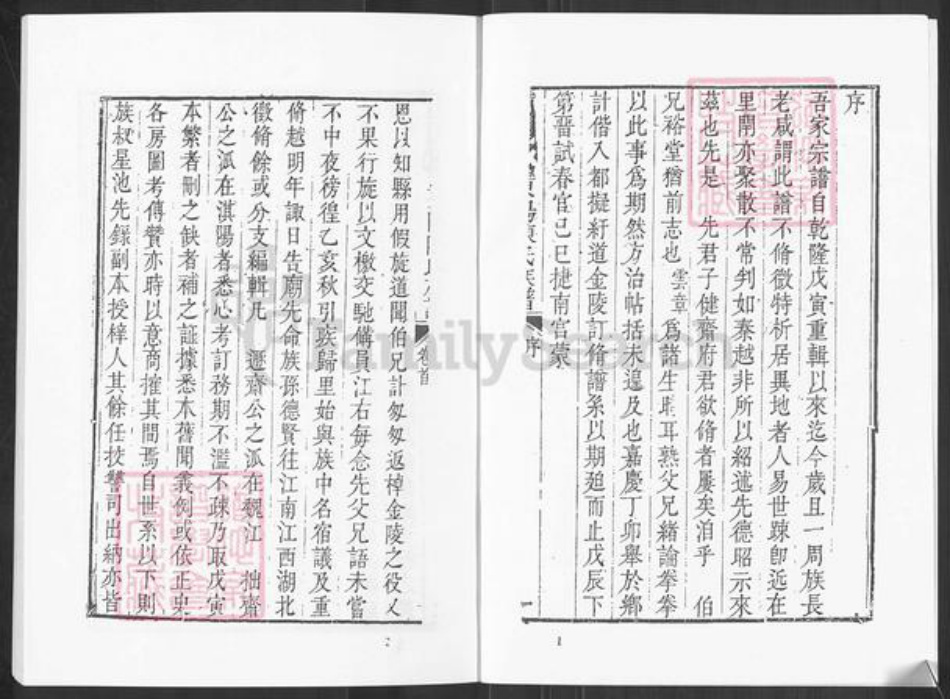 序
吾家宗譜自乾隆戊寅重輯以來迄今歲且一周族長
老咸謂此譜不脩微特析居異地者人易世踈卽近在
里閈亦聚散不常判如秦越非所以紹述先德昭示來
茲也先是 先君子健齋府君欲脩者屢矣洎乎 伯
兄裕堂猶前志也 雲章爲諸生時耳熟父兄緒論拳拳
以此事爲期然方治帖括未遑及也嘉慶丁卯舉於鄉
計偕入都擬紆道金陵訂脩譜系以期廹而止戊辰下
第晉試春官己巳捷南宮蒙
序
卷首
恩以知縣用假旋道聞伯兄訃匆匆返棹金陵之役又
不果行旋以文檄交馳備員江右每念先父兄語未嘗
不中夜徬徨乙亥秋引疾歸里始與族中名宿議及重
脩越明年諏日告廟先命族孫德賢往江南江西湖北
徵脩餘或分支編輯凡 遯齋公之派在魏江 拙齋
公之派在淇陽者悉心考訂務期不濫不疎乃取戊寅
本繁者刪之缺者補之証據悉本舊聞義例或依正史
各房圖考傳贊亦時以意商搉其間焉自世系以下則
族叔星池先錄副本授梓人其餘任校讐司出納亦皆
1
2
FamilySearch